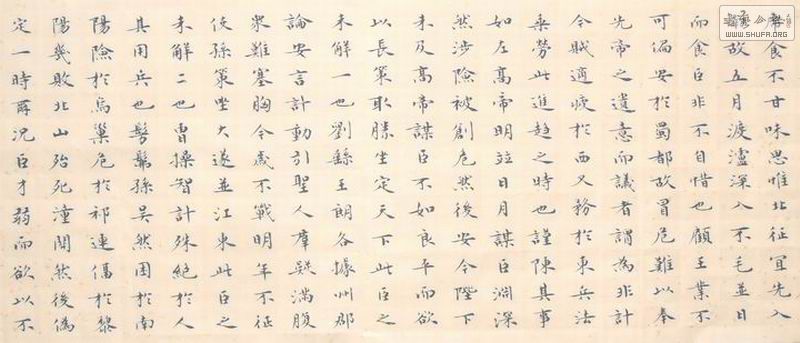 席食不甘味思惟北征宜先入
故五月渡瀘深入不毛並日
而食臣非不自惜也顧王業不
可偏安於蜀都故冒危難以奉
先帝之遺意而議者謂為非計
今賊適疲於西又務於東兵法
乘勞此進趨之時也謹陳其事
如左高帝明竝日月謀臣淵深
然涉險被創危然後安今陛下
未及高帝謀臣不如良平而欲
以長策取勝坐定天下此臣之
未解一也劉繇王朗各據州郡
論安言計動引聖人羣疑滿腹
眾難塞胸今歲不戰明年不征
使孫策坐大遂並江東此臣之
未解二也曹操智計殊絕於人
其用兵也髣髴孫吳然困於南
陽險於烏巢危於祁連偪於黎
陽幾敗北山殆死潼關然後偽
定一時爾況臣才弱而欲以不
WWW.SHUFA.ORG